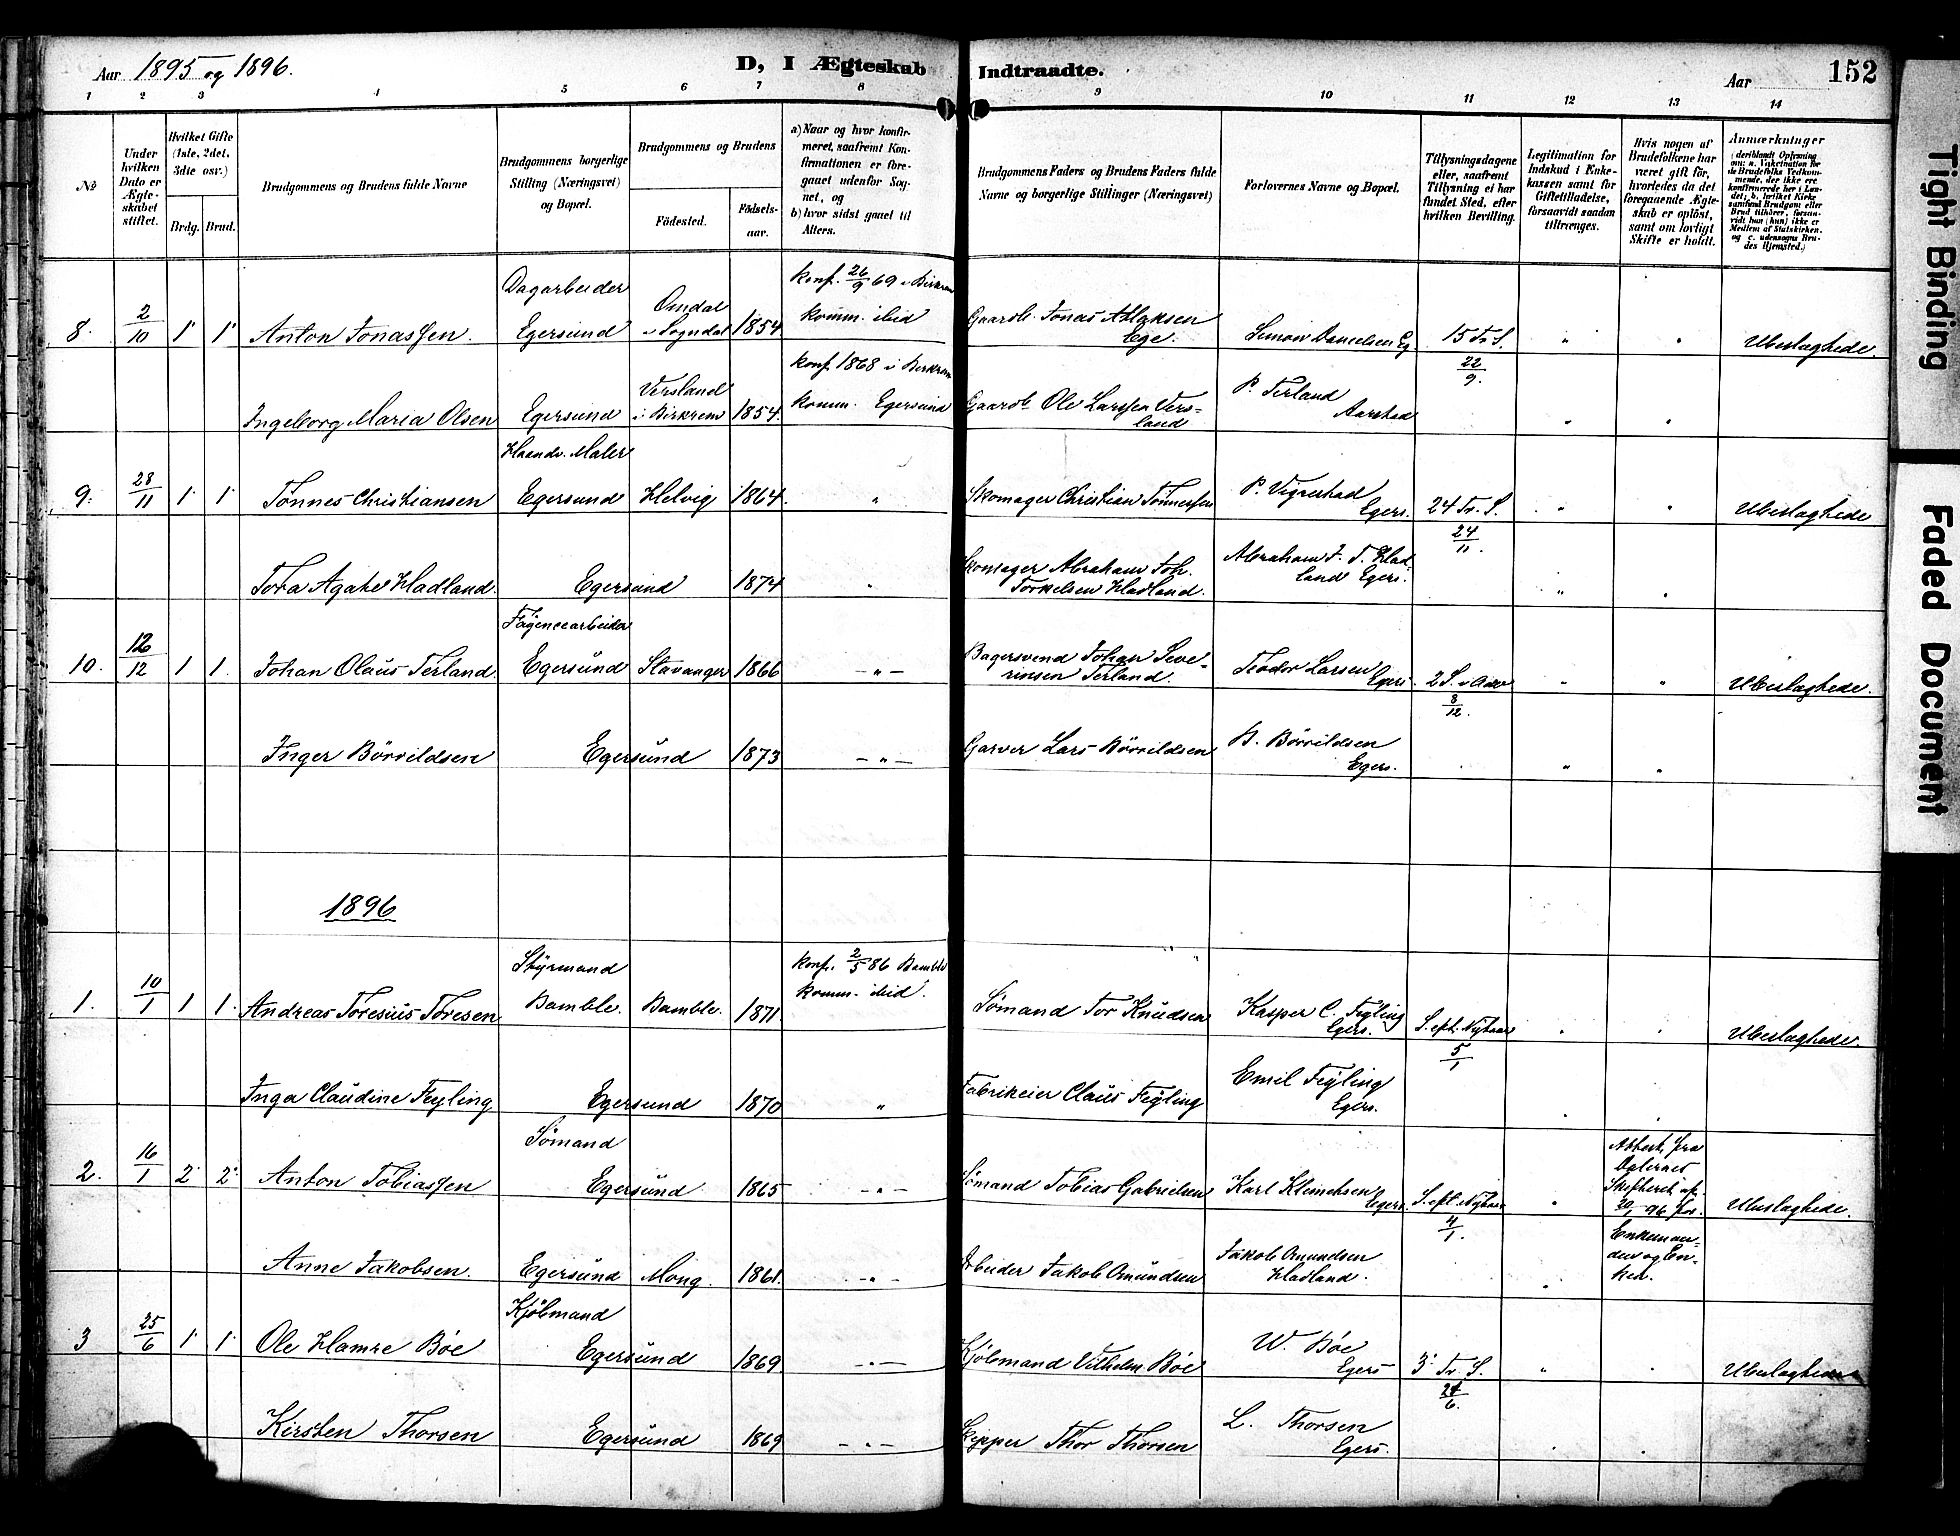 Aar 1895 og 1896.
D, I Ægteskab Indtraadte.
Aar
152
1 2 3 4 5 6 7 8 9 10 11 12 13 14
№
Under hvilken Dato er Ægteskabet stiftet.
Hvilket Gifte (1ste, 2det, 3die osv.)
Brdg. Brud.
Brudgommens og Brudens fulde Navne
Brudgommens borgerlige Stilling (Næringsvei) og Bopæl.
Brudgommens og Brudens
Fødested.
Fødselsaar.
a) Naar og hvor konfirmeret, saafremt Konfirmationen er foregaaet udenfor Sognet, og
b) hvor sidst gaaet til Alters.
Brudgommens Faders og Brudens Faders fulde Navne og borgerlige Stillinger (Næringsvei)
Forlovernes Navne og Bopæl.
Tillysningsdagene eller, saafremt Tillysning ei har fundet Sted, efter hvilken Bevilling.
Legitimation for Indskud i Enkekassen samt for Giftetilladelse, forsaavidt saadan tiltrænges.
Hvis nogen af Brudefolkene har været gift før, hvorledes da det foregaaende Ægteskab er opløst, samt om lovligt Skifte er holdt.
Anmærkninger
(deriblandt Oplysning om: a. Vaksination for de Brudefolks Vedkommende, der ikke ere konfirmerede her i Landet; b. hvilket Kirkesamfund Brudgom eller Brud tilhører, forsaavidt han (hun) ikke er Medlem af Statskirken. og c. udensogns Brudes Hjemsted.)
8. 2/10 1 1 Anton Jonassen. Dagarbeider Egersund Omdal i Sogndal 1854 konf. 26/9 69 i Birkrem komm. ibid Gaardb. Jonas Aslaksen Ege. Simon Danielsen Eg. 15 Tr. S. 22/9. " " Ubeslægtede
Ingeborg Maria Olsen Egersund Versland i Birkrem 1854. konf. 1868 i Birkrem komm. Egersund Gaardb. Ole Larssen Versland P. Terland Aarstad " "
9. 28/11 1 1 Tønnes Christiansen Haandv. Maler Egersund Helvig 1864. " Skomager Christian Tønnessen P. Vigrestad Egers. 24 Tr. S. 24/11. " " Ubeslægtede
Tora Agate Hadland. Egersund 1874 " Skomager Abraham Joh. Torkelsen Hadland. Abraham J. T. Hadland Egers. " "
10. 12/12 1 1. Johan Olaus Terland. Fayencearbeider Egersund Stavanger 1866 — " — Bagersvend Johan Severinsen Terland. Teodor Larsen Egers. 2 S. i Adv 8/12. " " Ubeslægtede.
Inger Børvildsen Egersund 1873 — " — Garver Lars Børvildsen B. Børvildsen Egers. " "
1896
1. 10/1 1 1. Andreas Toresius Toresen Styrmand Bamble. Bamble. 1871 konf. 2/5 86 Bamble komm. ibid. Sømand Tor Knudsen Kasper C. Feyling Egers. S. eft. Nytaar 5/1 " " Ubeslægtede.
Inga Claudine Feyling Egersund 1870 " Fabrikeier Claus Feyling Emil Feyling Egers.
2. 16/1 2 2 Anton Tobiassen Sømand Egersund 1865 — " — Sømand Tobias Gabrielsen Karl Klemetsen Egers. S. eft. Nytaar 4/1. " Attest fra Dalernes Skifteret af 96 for Enkemanden og Enken. Ubeslægtede.
Anne Jakobsen. Egersund Mong. 1861. — " — Arbeider Jakob Omundsen Jakob Omundsen Hadland. "
3 25/6 1 1 Ole Hamre Bøe Kjøbmand Egersund 1869 — " — Kjøbmand Vilhelm Bøe W. Bøe Egers 3 Tr. S. 24/6. " " Ubeslægtede
Kirsten Thorsen Egersund 1869 — " — Skipper Thor Thorsen L. Thorsen Egers.
Tight Binding
Faded Document